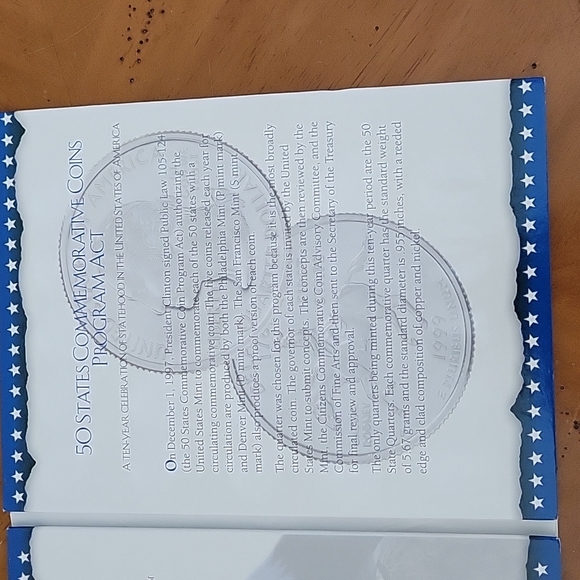 50 STATES COMMEMORATIVE COINS
PROGRAM ACT
A TEN-YEAR CELEBRATION OF STATEHOOD IN THE UNITED STATES OF AMERICA
On December 1, 1997, President Clinton signed Public Law 105-124
(the 50 States Commemorative Coin Program Act) authorizing the
United States Mint to commemorate each of the 50 states with a
circulating commemorative coin. The five coins released each year for
circulation are produced by both the Philadelphia Mint (P mint mark)
and Denver Mint (D mint mark). The San Francisco Mint (S mint
mark) also produces a proof version of each coin.
The quarter was chosen for this program because it is the most broadly
circulated coin. The governor of each state is invited by the United
States Mint to submit concepts. The concepts are then reviewed by the
Mint, the Citizens Commemorative Coin Advisory Committee, and the
Commission of Fine Arts and then sent to the Secretary of the Treasury
for final review and approval.
The only quarters being minted during this ten-year period are the 50
State Quarters. Each commemorative quarter has the standard weight
of 5.67 grams and the standard diameter is .955 inches, with a reeded
edge and clad composition of copper and nickel.
AMERICA
1999